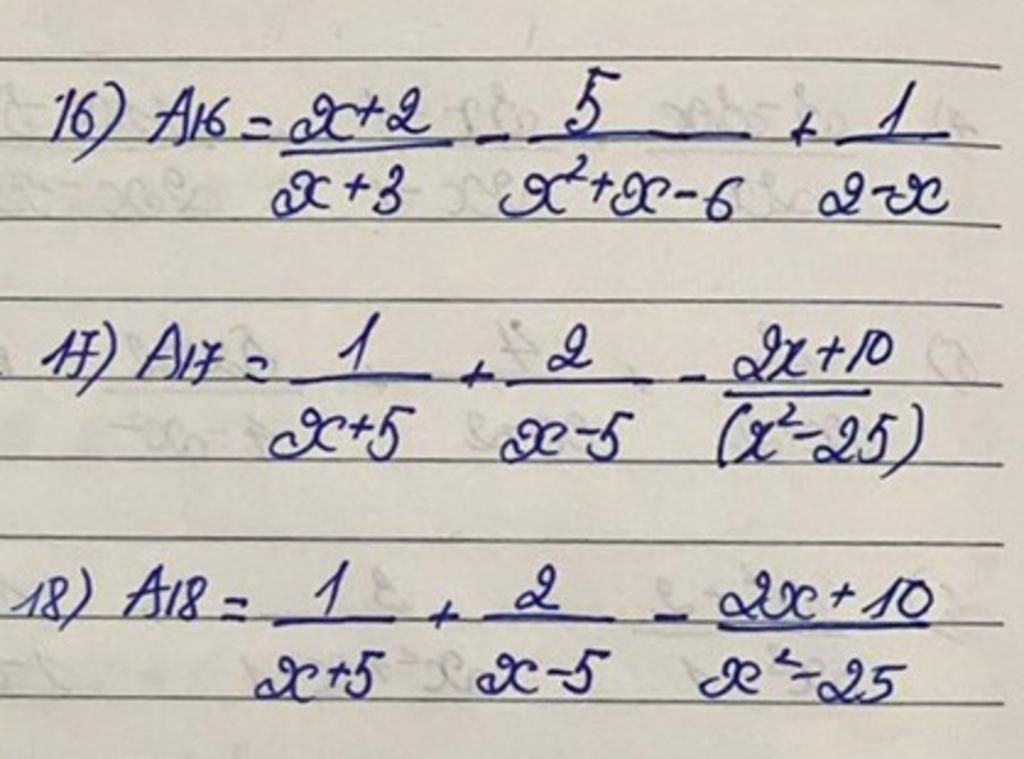 16) A16 = x+2/x+3 - 5/x²+x-6 + 1/2-x
17) A17 = 1/x+5 + 2/x-5 - 2x+10/(x²-25)
18) A18 = 1/x+5 + 2/x-5 - 2x+10/x²-25